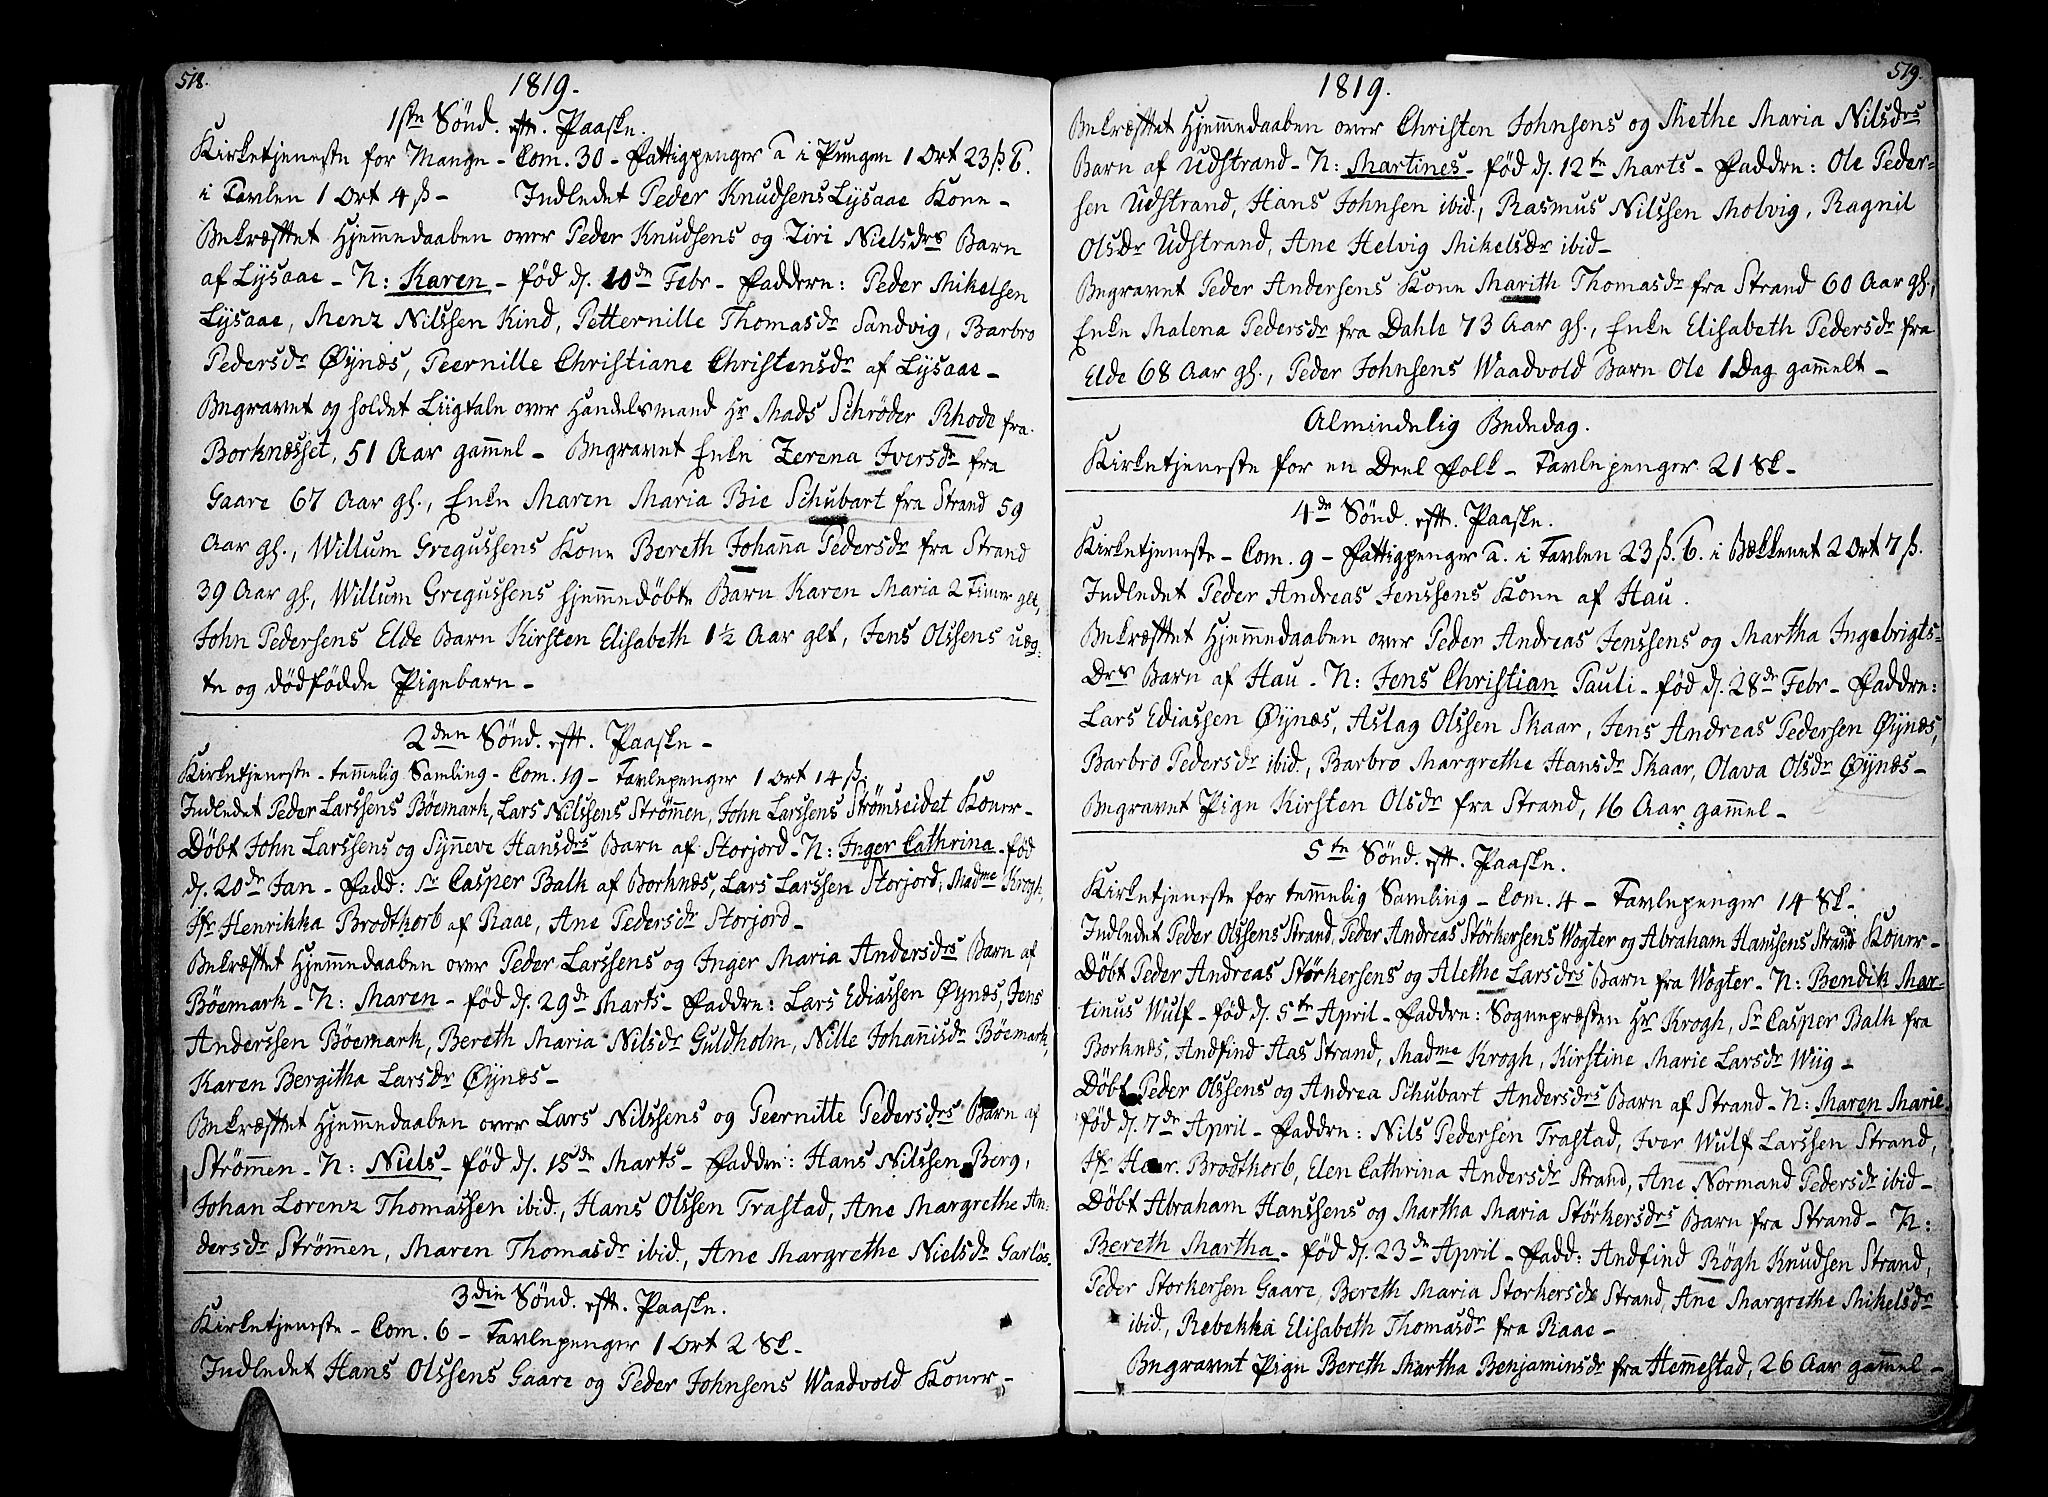 518.
1819.
1ste Sönd. eftr. Paaske.
Kirketjeneste for Mange - Com. 30 - Fattigpenger a i Pungen 1 Ort 23 ß. b.
i Tavlen 1 Ort 4 ß - Indledet Peder Knudsens Lysaae Kone -
Bekræftet Hjemmedaaben over Peder Knudsens og Ziri Nielsdrs Barn
af Lysaae - N: Karen - fød d. 10de Febr - Faddern: Peder Mikelsen
Lysaae, Menz Nilssen Kind, Petternille Thomasdr Sandvig, Barbro
Pedersdr Øynæs, Peernille Christiane Christensdr af Lysaae -
Begravet og holdet Liigtale over Handelsmand Hr Mads Schrøder Rhode fra
Borknæsset, 51 Aar gammel - Begravet Enke Zerena Iversdr fra
Gaare 67 Aar gl., Enke Maren Maria Bie Schubart fra Strand 59
Aar gl., Willum Gregussens Kone Bereth Johanna Pedersdr fra Strand
39 Aar gl, Willum Gregussens hjemmedøbte Barn Karen Maria 2 Timer glt,
John Pedersens Elde Barn Kirsten Elisabeth 1½ Aar glt, Jens Olssens uæg-
te og dödfödde Pigebarn -
2den Sönd. eftr. Paaske -
Kirketjeneste - temmelig Samling - Com. 19 - Tavlepenger 1 Ort 14 ß.
Indledet Peder Larssens Böemark, Lars Nilssens Strömmen, John Larssens Strömseidet Koner -
Döbt John Larssens og Synneve Hansdrs Barn af Storjord - N: Inger Cathrina - föd
d. 20de Jan - Fadd: Sr Casper Balk af Borknæs, Lars Larssen Storjord, Madme Krogh,
Jfr Henrikka Brodtkorb af Raae, Ane Pedersdr Storjord -
Bekræftet Hjemmedaaben over Peder Larssens og Inger Maria Andersdrs Barn af
Böemark - N: Maren - föd d. 29de Marts - Faddre: Lars Ediassen Øynæs, Jens
Anderssen Böemark, Bereth Maria Nilsdr Guldholm, Nille Johannisdr Böemark,
Karen Bergitha Larsdr Øynæs -
Bekræftet Hjemmedaaben over Lars Nilssens og Peernille Pedersdrs Barn af
Strömmen - N: Niels - föd d. 15de Marts - Faddre: Hans Nilssen Berg,
Johan Lorenz Thomassen ibid., Hans Olssen Trastad, Ane Margrethe An-
dersdr Strömmen, Maren Thomasdr ibid., Ane Margrethe Nielsdr Garlös.
3die Sönd. eftr. Paaske.
Kirketjeneste - Com. 6 - Tavlepenger 1 Ort 2 Sk. -
Indledet Hans Olssens Gaare og Peder Johnsens Waadvold Koner -
519.
1819.
Bekræftet Hjemmedaaben over Christen Johnsens og Methe Maria Nilsdrs
Barn af Udstrand - N: Martines - föd d. 12te Marts - Faddre: Ole Peder-
sen Udstrand, Hans Johnsen ibid., Rasmus Nilssen Molvig, Ragnil
Olsdr Udstrand, Ane Helvig Mikelsdr ibid -
Begravet Peder Andersens Kone Marith Thomasdr fra Strand 60 Aar gl.,
Enke Malena Pedersdr fra Dahle 73 Aar gl., Enke Elisabeth Pedersdr fra
Elde 68 Aar gl., Peder Johnsens Waadvold Barn Ole 1 Dag gammelt -
Almindelig Bededag.
Kirketjeneste for en Deel Folk - Tavlepenger 21 Sk -
4de Sönd. eftr. Paaske.
Kirketjeneste - Com. 9 - Fattigpenger a. i Tavlen 23 ß. b. i Bækkenet 2 Ort 7 ß.
Indledet Peder Andreas Jenssens Kone af Hau.
Bekræftet Hjemmedaaben over Peder Andreas Jenssens og Martha Ingebrigts-
Drs Barn af Hau - N: Jens Christian Pauli - föd d. 28de Febr - Faddre:
Lars Ediassen Øynæs, Aslag Olssen Skaar, Jens Andreas Pedersen Øynæs,
Barbro Pedersdr ibid., Barbro Margrethe Hansdr Skaar, Olava Olsdr Øynæs -
Begravet Pige Kirsten Olsdr fra Strand, 16 Aar gammel -
5te Sönd. eftr. Paaske.
Kirketjeneste for temmelig Samling - Com. 4 - Tavlepenger 14 Sk -
Indledet Peder Olssens Strand, Peder Andreas Störkersens Wogter og Abraham Hanssens Strand Koner -
Döbt Peder Andreas Störkersens og Alethe Larsdrs Barn fra Wogter - N: Bendik Mar-
tinus Wulf - föd d. 5te April - Faddre: Sognepræsten Hr Krogh, Sr Casper Balk fra
Borknæs, Andfind Aas Strand, Madme Krogh, Kirstine Marie Larsdr Wiig -
Döbt Peder Olssens og Andrea Schubart Andersdrs Barn af Strand - N: Maren Marie -
föd d. 7de April - Faddre: Nils Pedersen Trastad, Iver Wulf Larssen Strand,
Jfr Hær. Brodtkorb, Elen Cathrina Andersdr Strand, Ane Normand Pedersdr ibid -
Döbt Abraham Hanssens og Martha Maria Störkersdrs Barn fra Strand - N:
Bereth Martha - föd d. 23de April - Fadd: Andfind Rögh Knudsen Strand,
Peder Storkersen Gaare, Bereth Maria Storkersdr Strand, Ane Margrethe Mikelsdr
ibid., Rebekka Elisabeth Thomasdr fra Raae -
Begravet Pige Bereth Martha Benjaminsdr fra Hemmestad, 26 Aar gammel -